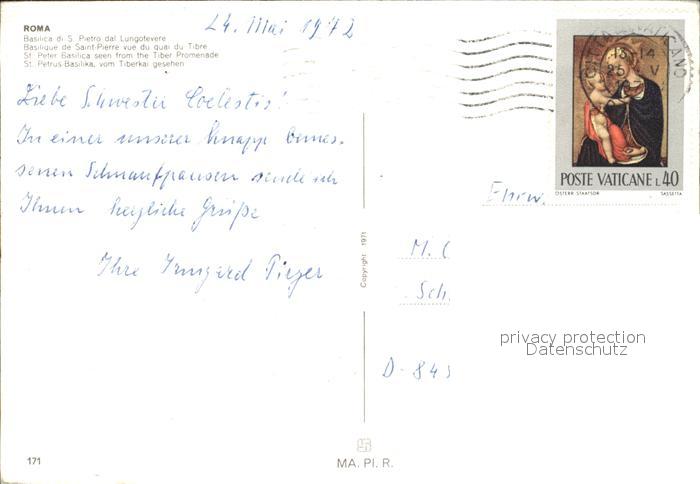 24. Mai 1972
ROMA
Basilica di S. Pietro dal Lungotevere
Basilique de Saint-Pierre vue du quai du Tibre
St. Peter Basilica seen from the Tiber Promenade
St. Petrus-Basilika, vom Tiberkai gesehen
Liebe Schwester Coelestis!
In einer unserer knapp bemes-
senen Schnaufpausen sende ich
Ihnen herzliche Grüße
Ihre Irmgard
CITTÀ VATICANO
POSTE VATICANE L. 40
ÖSTERR. STAATSDR. SASSETTA
Ehrw.
M. C
Sch.
D-845
Copyright 1971
privacy protection
Datenschutz
171
MA. PI. R.